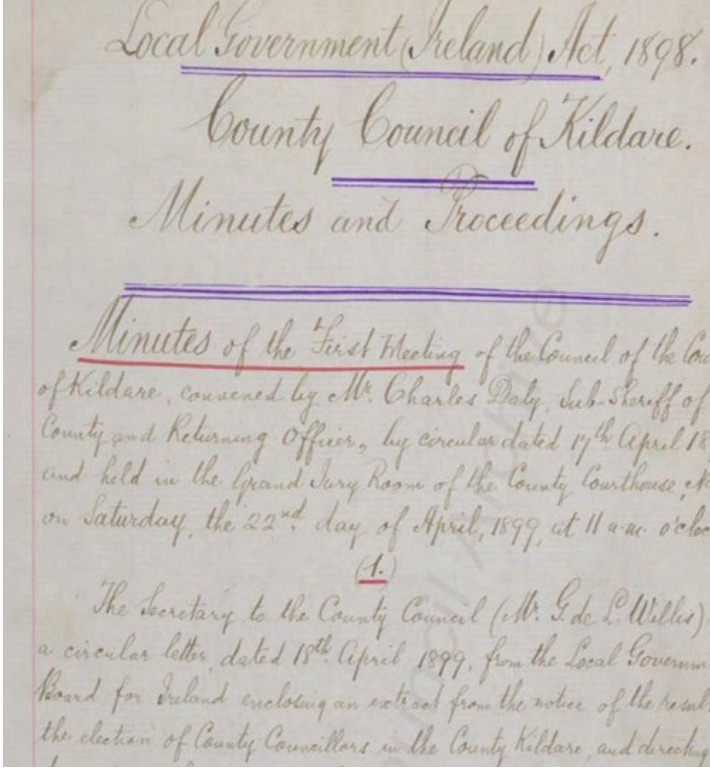 Local Government (Ireland) Act, 1898.
County Council of Kildare.
Minutes and Proceedings.
Minutes of the First Meeting of the Council of the Cou
of Kildare, convened by Mr. Charles Daly, Sub-Sheriff of
County and Returning Officer, by circular dated 17th April 18
and held in the Grand Jury Room of the County Courthouse, N
on Saturday, the 22nd day of April, 1899, at 11 a.m. o'cloc
(1.)
The Secretary to the County Council (Mr. G. de L. Willis)
a circular letter, dated 18th April 1899, from the Local Governm
Board for Ireland enclosing an extract from the notice of the resul
the election of County Councillors in the County Kildare, and directing